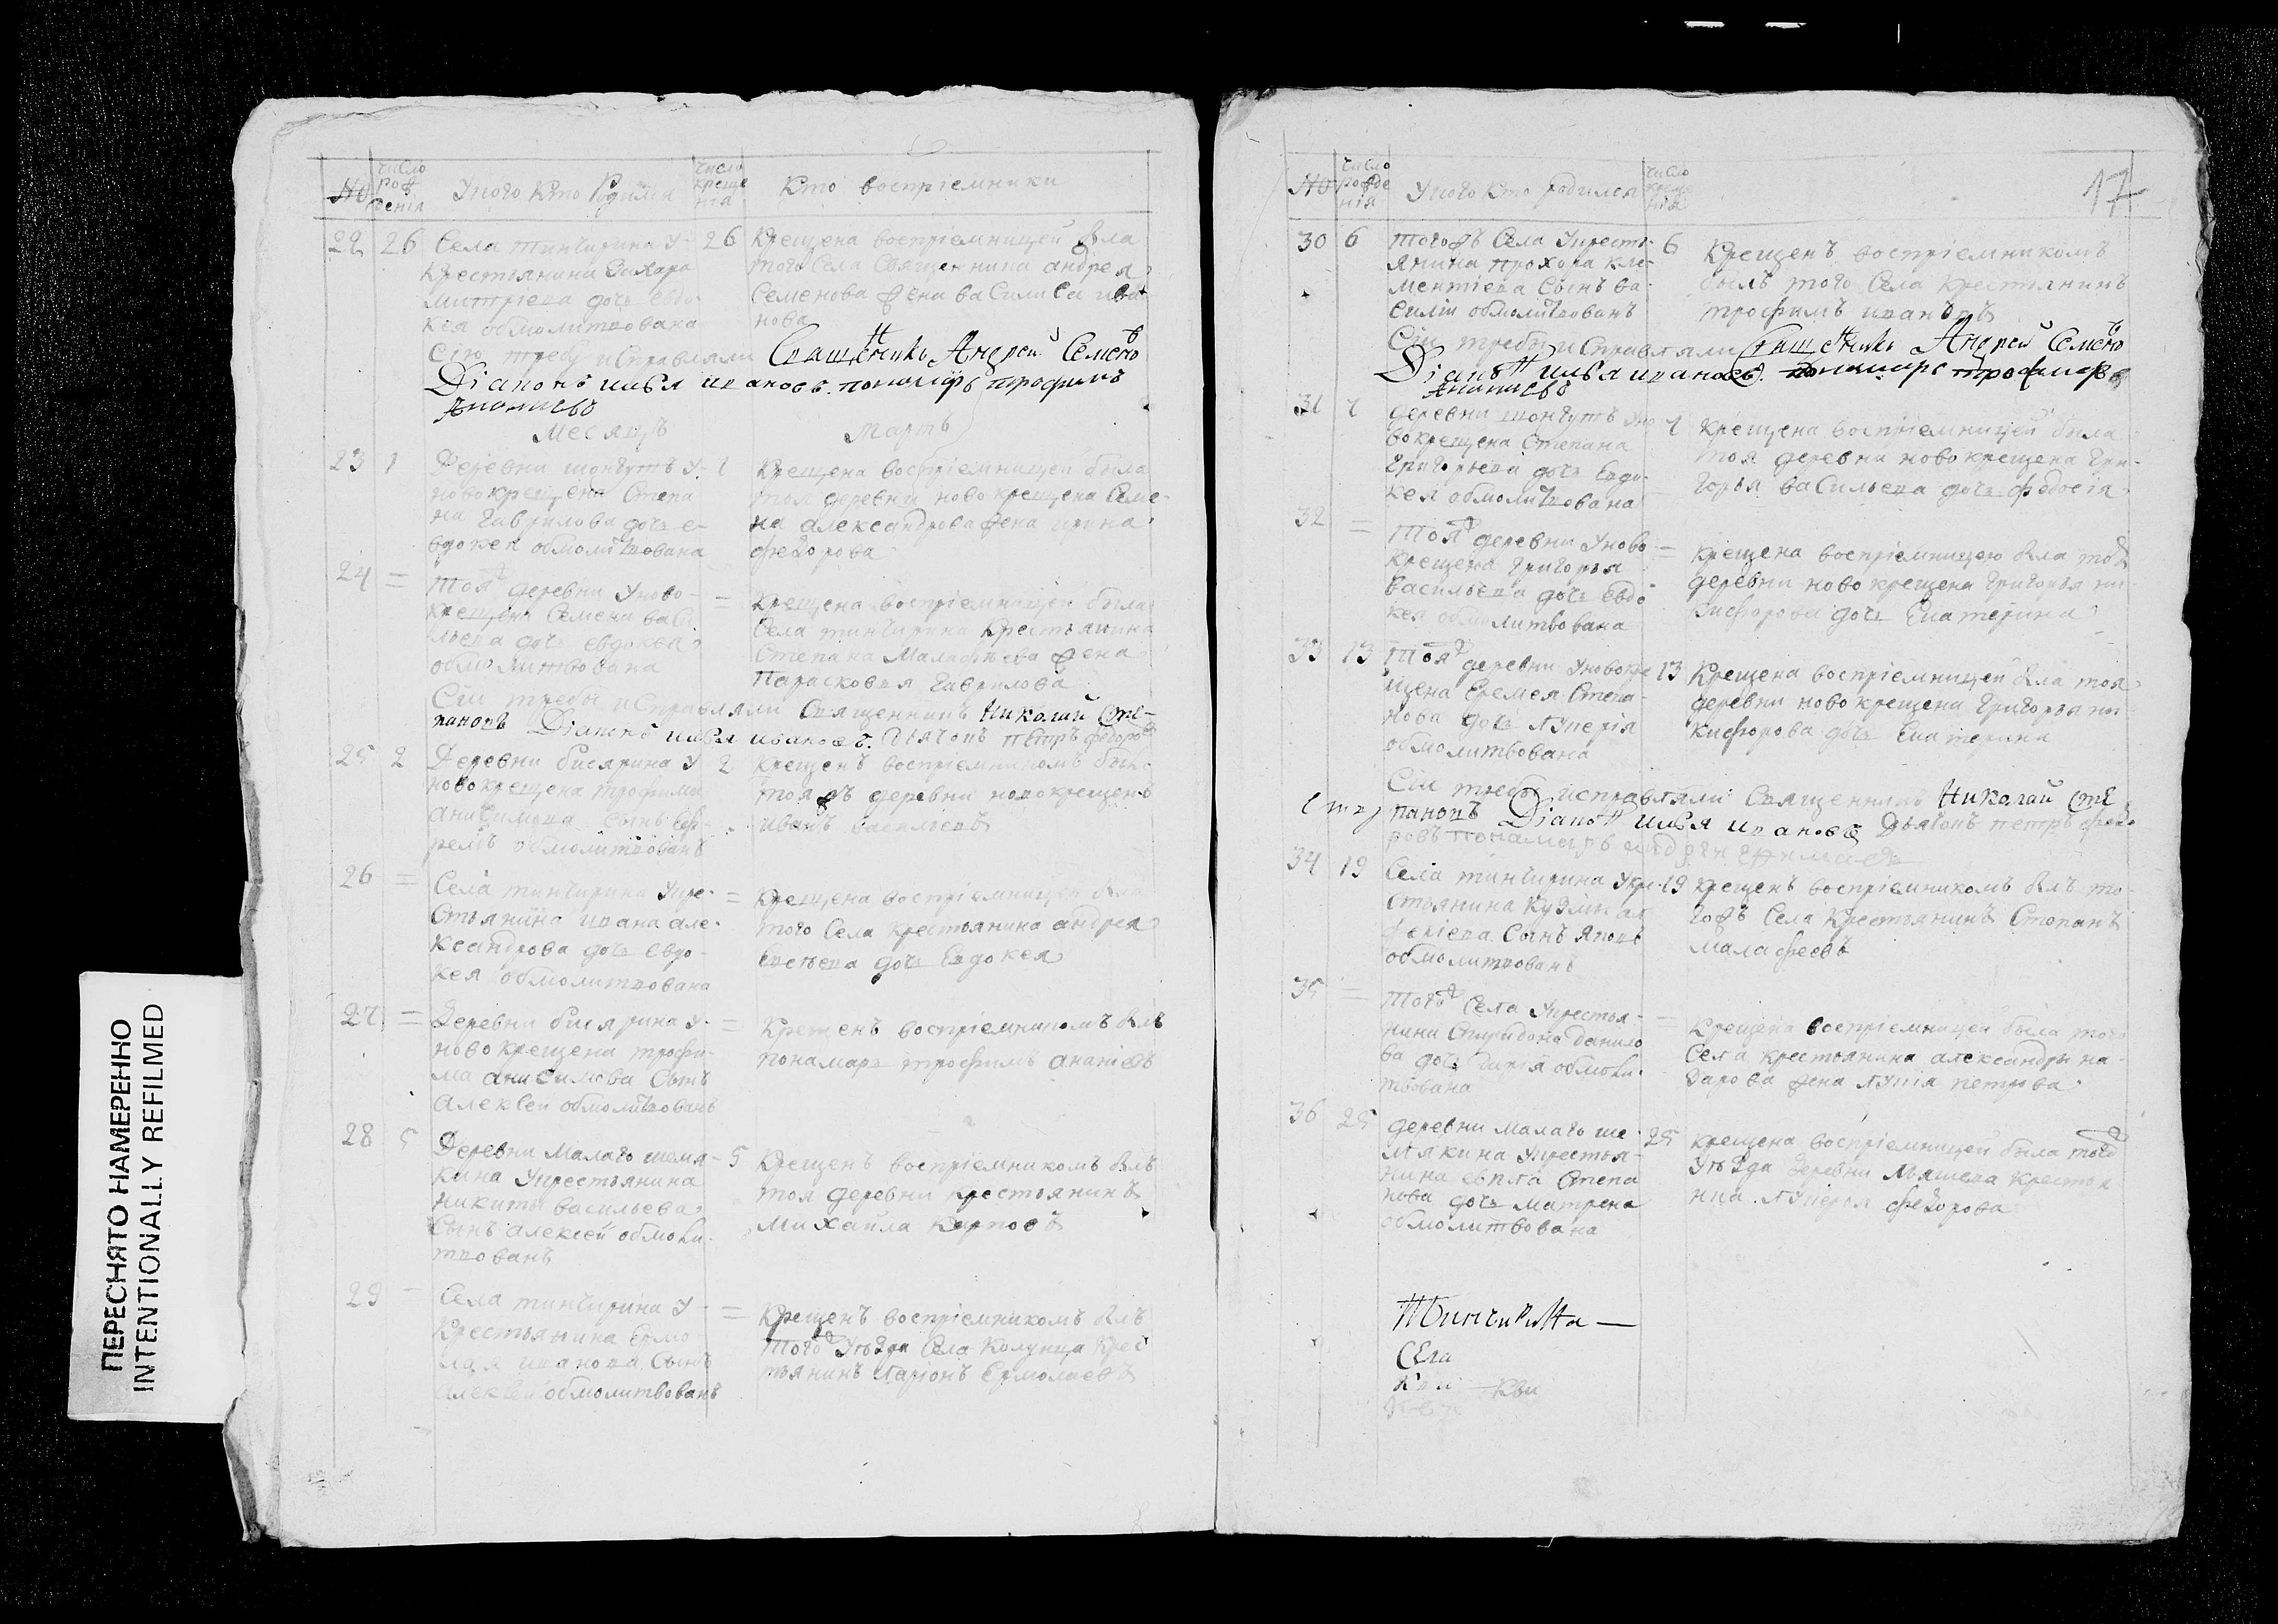 ПЕРЕСНЯТО НАМЕРЕННО
INTENTIONALLY REFILMED
№
число рождения
У кого кто родился
число крещения
Кто воспрiемники
22 26 Села тинчирина у 26
крестьянина Захара
митрiева дочь евдо-
кея обмолитвована
Крещена воспрiемницей была
того села Священника андрея
Семенова жена василиса ива
нова
сiю требу исправляли Священникъ Андрей Семеновъ
Дiаконъ илья ивановъ. пономарь трофимъ
Ананьевъ
Месяцъ Мартъ
23 1 Деревни шонгутъ у- 1
новокрещена Степа
на Гаврилова дочь е-
вдокея обмолитвована
Крещена воспрiемницей была
тоя деревни новокрещена Семе-
на александрова жена ирина
федорова
24 = Тояж деревни у ново- =
крещена Семена васи
льева дочь евдокея
обмолитвована
Крещена воспрiемницей была
Села тинчирина Крестьянина
Степана Малафеева жена
Парасковья Гаврилова
Сiи требы исправляли Священникъ Николай Сте-
пановъ Дiаконъ илья ивановъ. Дьячокъ петръ федоровъ
25 2 Деревни бисярина у 2
новокрещена трофима
анисимова сынъ
обмолитвованъ
Крещенъ воспрiемникомъ былъ
тояжъ деревни новокрещенъ
иванъ васильевъ
26 = Села тинчирина у кре- =
стьянина ивана але-
ксандрова дочь евдо-
кея обмолитвована
Крещена воспрiемницей была
того села крестьянина андрея
дочь Евдокея
27 = Деревни бисярина у- =
новокрещена трофи-
ма анисимова Сынъ
алексеи обмолитвованъ
Крещенъ воспрiемникомъ былъ
понамарь трофимъ ананiевъ
28 5 Деревни Малаго шемя- 5
кина у крестьянина
никиты васильева
Сынъ алексей обмоли-
твованъ
Крещенъ воспрiемникомъ былъ
тоя деревни крестьянинъ
михайла карповъ
29 = Села тинчирина у- =
Крестьянина Ермо
лая иванова Сынъ
алексей обмолитвованъ
Крещенъ воспрiемникомъ былъ
того уѣзда Села Колунца Крес
тьянинъ Ларiонъ Ермолаевъ
17
№
число рожденiя
У кого кто родился
число крещенiя
30 6 тогожъ Села у кресть- 6
янина прохора кле-
ментiева Сынъ ва-
силiи обмолитвованъ
Крещенъ воспрiемникомъ
былъ того Села Крестьянинъ
трофимъ ивановъ
Сiи требы исправляли Священникъ Андрей Семеновъ
Дiаконъ илья ивановъ. пономарь трофимъ
Ананьевъ
31 7 деревни шонгутъ у но 7
вокрещена Степана
Григорьева дочь Евдо-
кея обмолитвована
Крещена воспрiемницей была
тоя деревни новокрещена Гри-
горья васильева дочь федосiя
32 = Тояж деревни у ново =
крещена Григорья
васильева дочь евдо
кея обмолитвована
Крещена воспрiемницею была тояж
деревни новокрещена Григорья ни-
кифорова дочь Екатерина
33 13 Тояж деревни у новокре 13
щена Еремея Степа-
нова дочь Лукерiя
обмолитвована
Крещена воспрiемницей была тоя
деревни новокрещена Григорья ни-
кифорова дочь Екатерина
Сiи требы исправляли Священникъ Николай Сте
пановъ Дiаконъ илья ивановъ Дьячокъ петръ федо
ровъ понамарь
34 19 Села тинчирина у кре- 19
стьянина Кузмы
Сынъ яковъ
обмолитвованъ
Крещенъ воспрiемникомъ былъ то-
гожъ Села Крестьянинъ Степанъ
малафеевъ
35 = Тогож Села у крестья- =
нина Спиридона данило
ва дочь дарiя обмоли-
твована
Крещена воспрiемницей была того
Села крестьянина александра на-
зарова жена петрова
36 25 деревни малаго ше- 25
мякина у крестья-
нина евпла Степа
нова дочь матрена
обмолитвована
Крещена воспрiемницей была тогож
уѣзда деревни крестья
нка Лукерья федорова
Тинчирина
Села